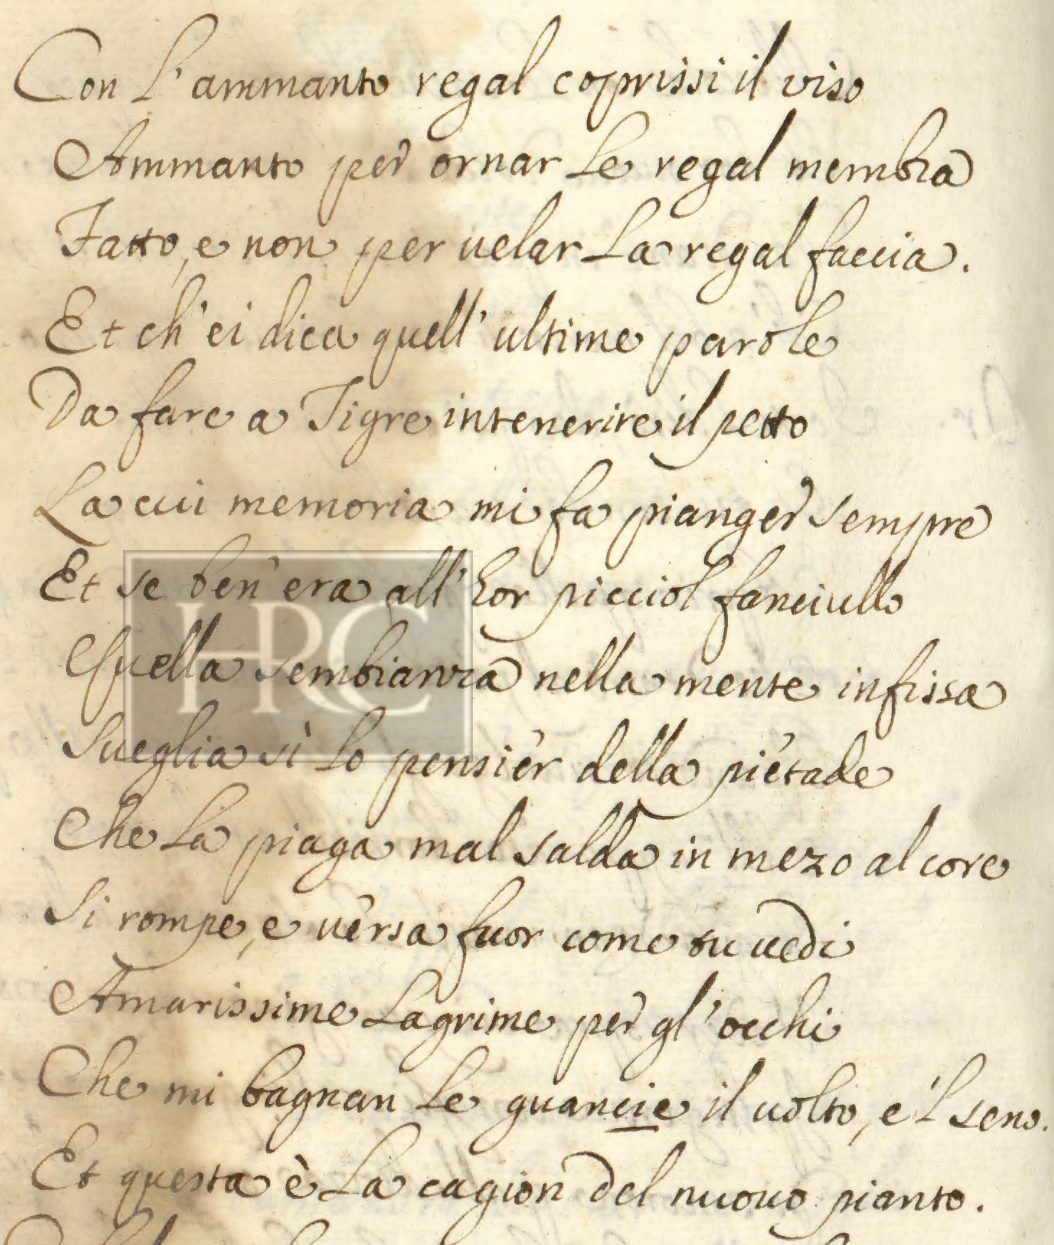 Con l'ammanto regal coprissi il viso
Ammanto per ornar le regal membra
Fatto, e non per uelar la regal faccia.
Et ch'ei dica quell'ultime parole
Da fare a Tigre intenerire il petto
La cui memoria mi fa pianger sempre
Et se ben'era all'hor picciol fanciullo
Quella sembianza nella mente infissa
Sueglia sì lo pensier della pietade
Che la piaga mal salda in mezo al core
Si rompe, e versa fuor come tu uedi
Amarissime lagrime per gl'occhi
Che mi bagnan le guancie il uolto, e'l seno.
Et questa è la cagion del nuouo pianto.
HRC